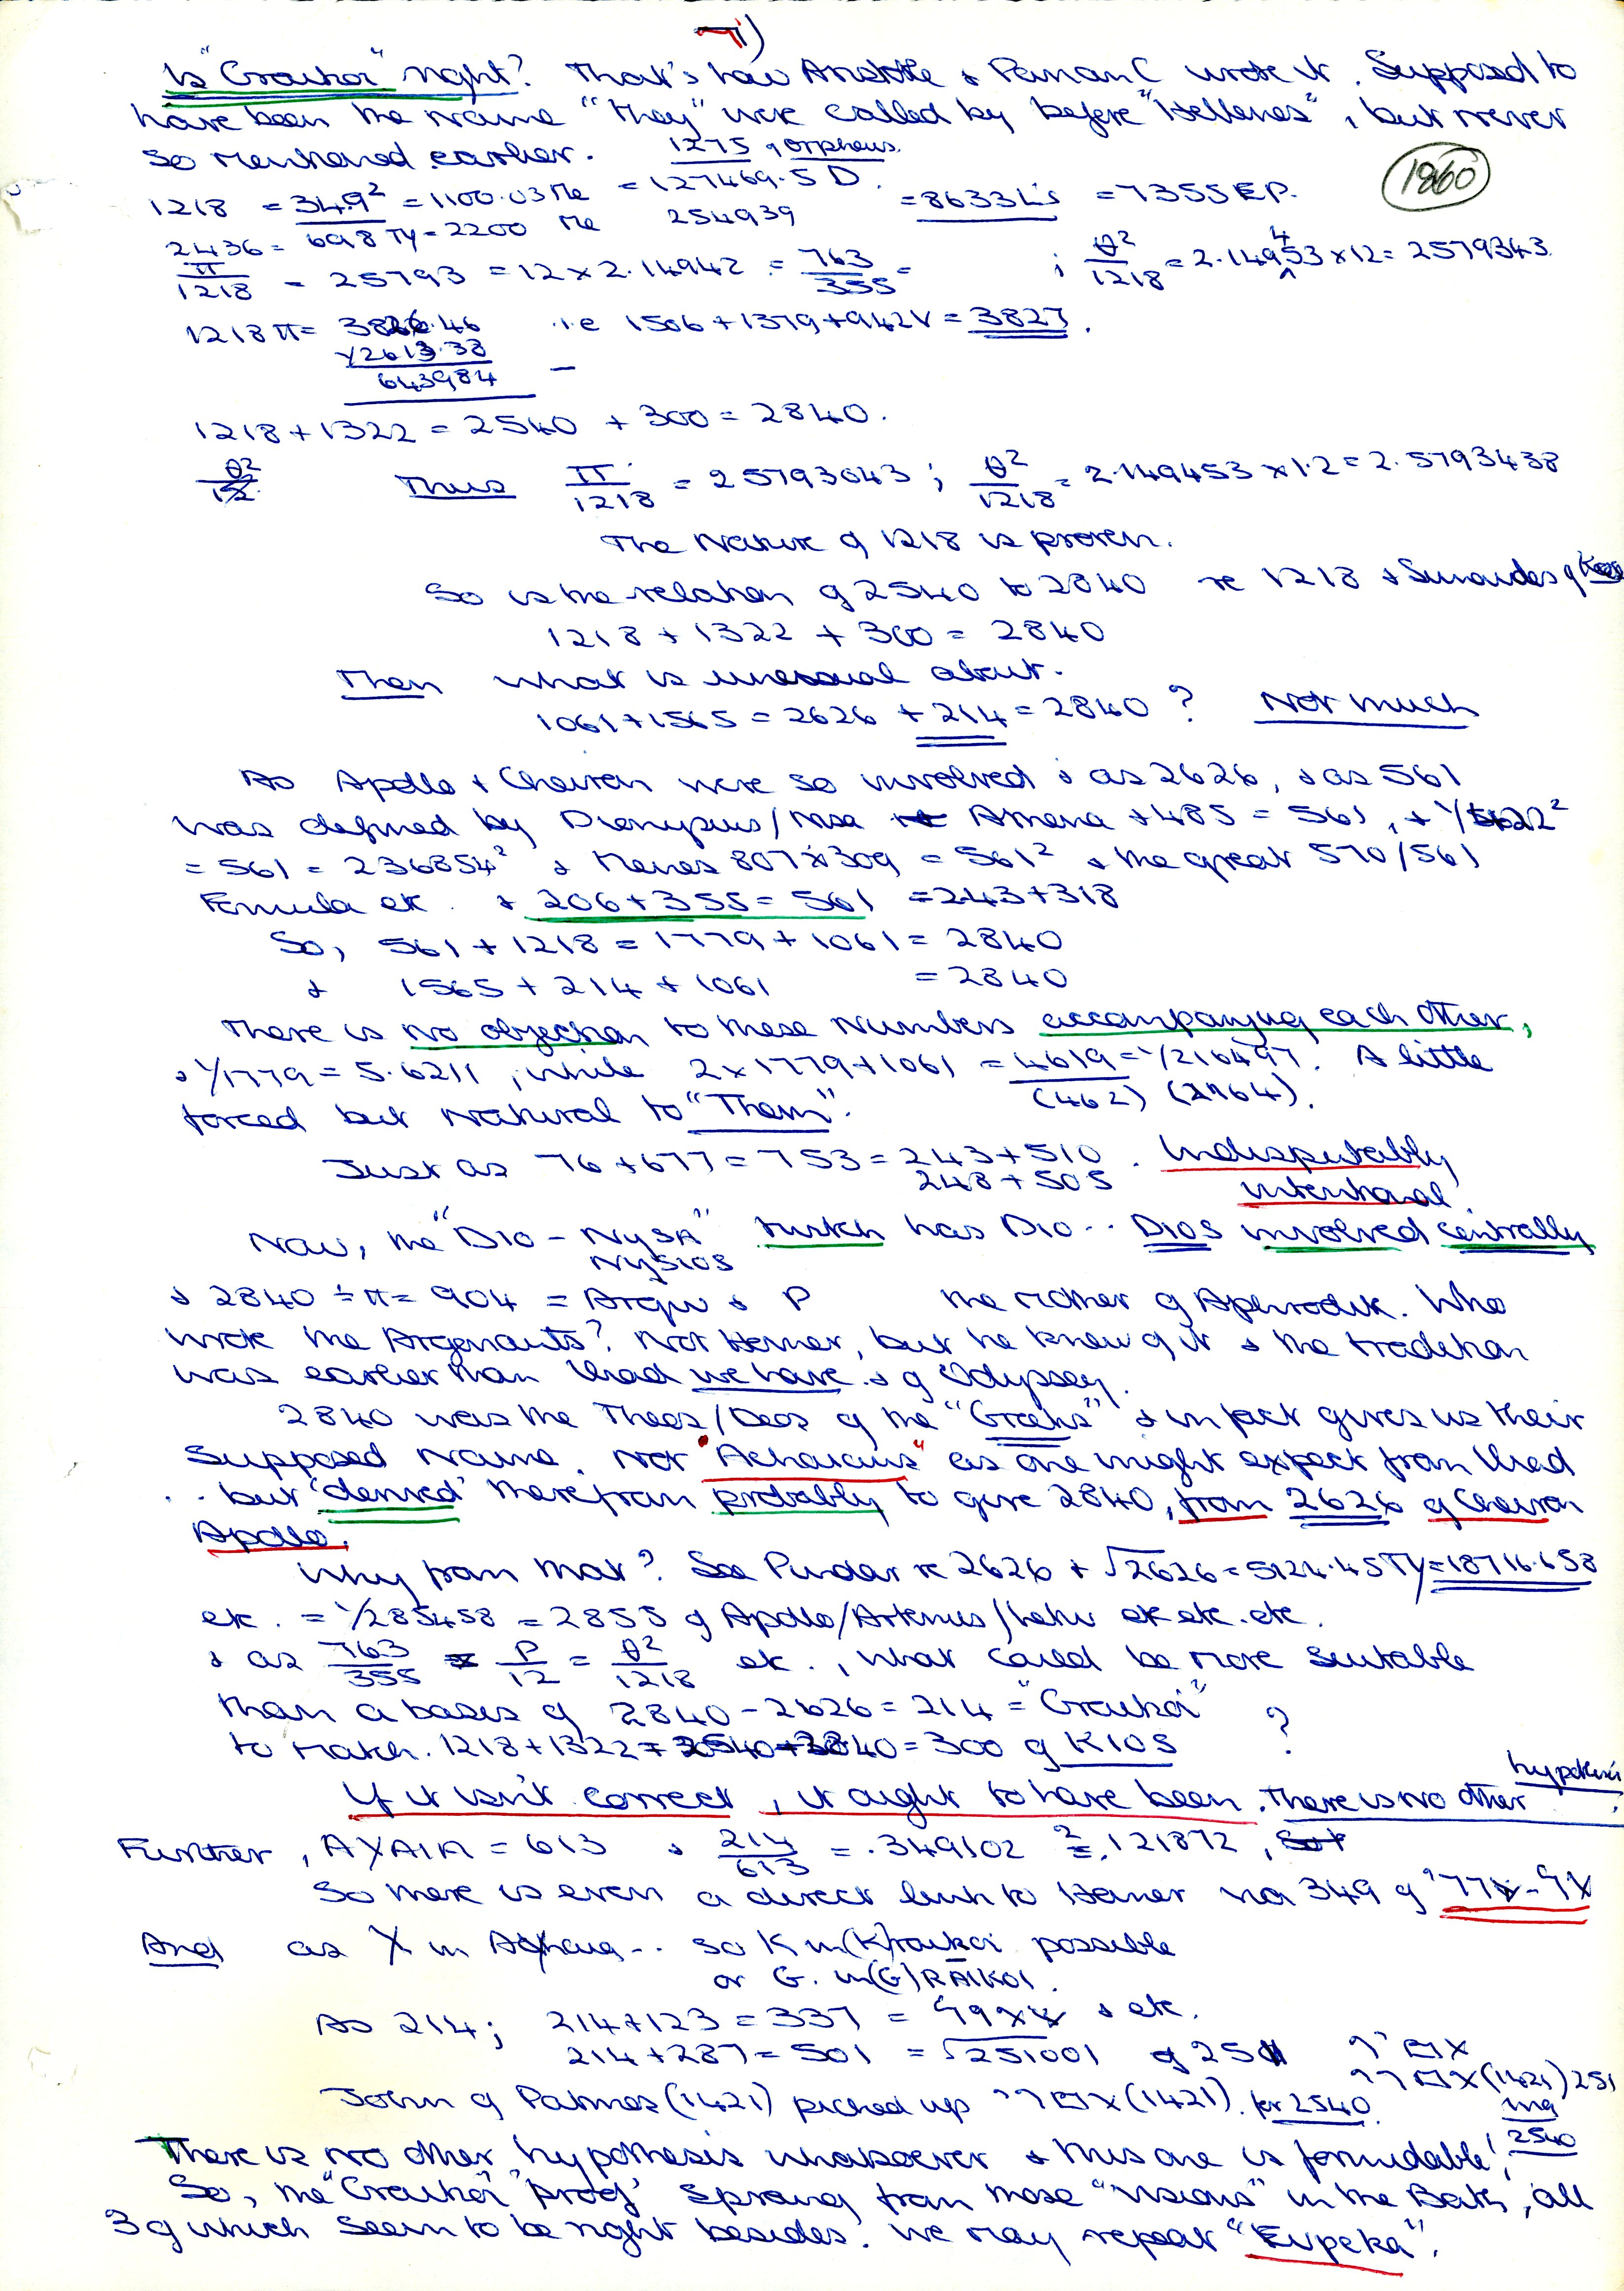 Is "Graikoi" right? That's how Aristotle & Parian C wrote it. Supposed to
have been the name "they" were called by before "Hellenes", but never
so mentioned earlier. 1275 of Orpheus.
1860
1218 = 34.9² = 1100.03 Me = 127469.5 D. = 8633 L's = 7355 EP.
2436 = 698 TY = 2200 Me 254939
π/1218 = 25793 = 12 x 2.14942 = 763/355 = ; θ²/1218 = 2.149453 x 12 = 2579343
1218 π = 3826.46 i.e 1506 + 1379 + 942 = 3827.
1/2613.38
643984
1218 + 1322 = 2540 + 300 = 2840.
θ²/12 Thus π/1218 = 25793043 ; θ²/1218 = 2.149453 x 1.2 = 2.5793438
The Nature of 1218 is proven.
So is the relation of 2540 to 2840 re 1218 & Simonides of Keos
1218 + 1322 + 300 = 2840
Then what is unusual about.
1061 + 1565 = 2626 + 214 = 2840 ? Not much
As Apollo & Cheiron were so involved & as 2626, & as 561
was defined by Dionysus/Nysa Amena + 485 = 561, + 1/422²
= 561 = 236854² & Menes 807 x 309 = 561² & the great 570/561
Formula etc. & 206 + 355 = 561 = 243 + 318
So, 561 + 1218 = 1779 + 1061 = 2840
& 1565 + 214 + 1061 = 2840
There is no objection to these numbers accompanying each other,
& 1/1779 = 5.6211, while 2 x 1779 + 1061 = 4619 = 1/216497. A little
(462) (2164).
forced but natural to "Them".
Just as 76 + 677 = 753 = 243 + 510. Indisputably
248 + 505 intentional.
Now, the "DIO - NYSA" which has DIO.. DIOS involved centrally
NYSIOS
& 2840 ÷ π = 904 = Argw & P the mother of Aphrodite. Who
wrote the Argonauts? Not Homer, but he knew of it & the tradition
was earlier than Iliad we have. & of Odyssey.
2840 was the Theos/Deos of the "Greeks" & in fact gives us their
supposed name. Not "Achaians" as one might expect from Iliad
.. but 'derived' therefrom probably to give 2840, from 2626 of Cheiron
Apollo.
Why from that? See Pindar re 2626 + √2626 = 5124.45 TY = 18716.658
etc. = 1/285458 = 2855 of Apollo/Artemis/Letw etc etc. etc.
& as 763/355 = P/12 = θ²/1218 etc., what could be more suitable
than a bases of 2840 - 2626 = 214 = "Graikoi" ?
to match. 1218 + 1322 = 2540 - 2840 = 300 of KIOS
If it isn't correct, it ought to have been. There is no other hypothesis.
Further, AXAIA = 613 & 214/613 = .349102 ² = .121872,
So there is even a direct link to Homer via 349 of
And as X in Achaia.. so K in (K)raikoi possible
or G. in (G)RAIKOI.
As 214; 214 + 123 = 337 = & etc.
214 + 287 = 501 = √251001 of 251
John of Patmos (1421) picked up (1421). for 2540.
(1421) 251
2540
There is no other hypothesis whatsoever & this one is formidable!
So, the "Graikoi" 'proof' sprang from those "visions" in the Bath, all
3 of which seem to be right besides. We may repeat "Eupeka".